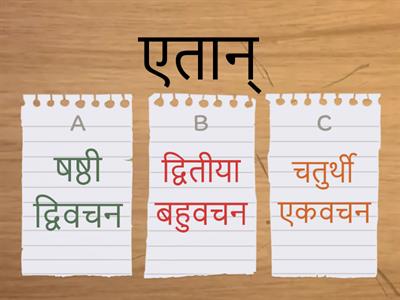 एतान्
A
षष्ठी
द्विवचन
B
द्वितीया
बहुवचन
C
चतुर्थी
एकवचन